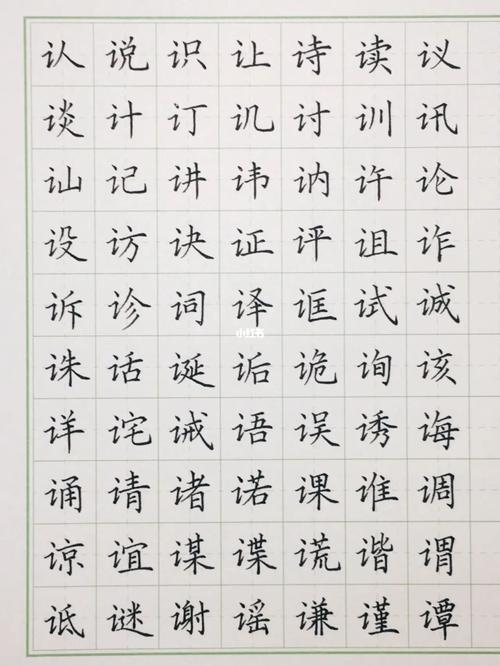 认说识让诗读议
谈计订讥讨训讯
讪记讲讳讷许论
设访诀证评诅诈
诉诊词译诓试诚
诛话诞诟诡询该
详诧诫语误诱诲
诵请诸诺课谁调
谅谊谋谍谎谐谓
诋谜谢谣谦谨谭
小红书